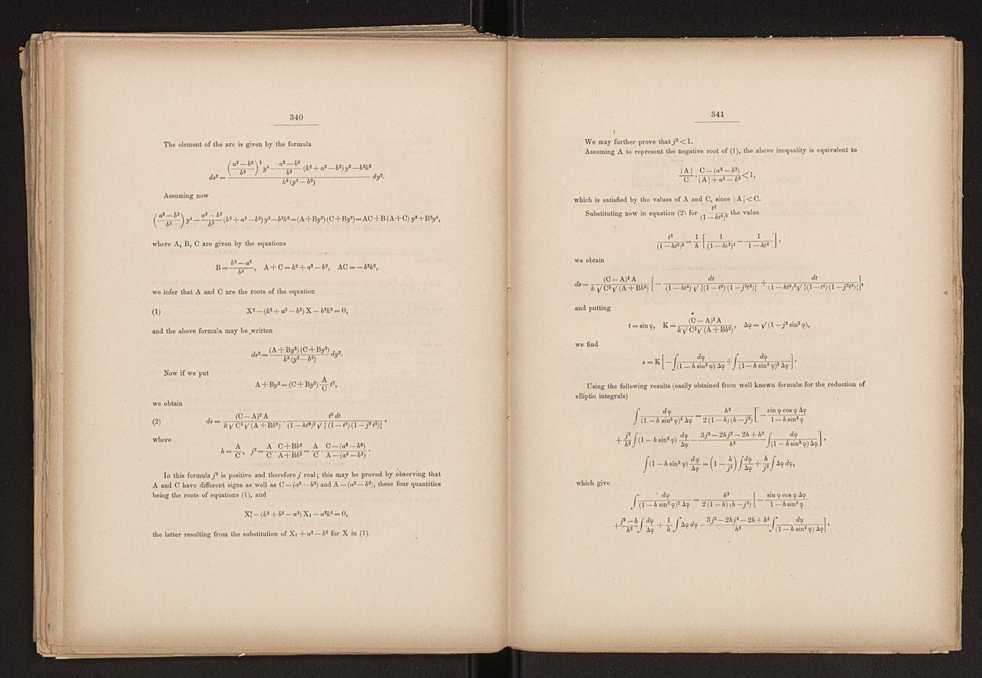 340
The element of the arc is given by the formula
ds² = ((a²—b²)/b²)² y⁴ — (a²—b²)/b² (k²+a²—b²) y²—b²k² / k²(y²—b²) dy².
Assuming now
((a²—b²)/b²)² y⁴ — (a²—b²)/b² (k²+a²—b²) y²—b²k² = (A+By²)(C+By²) = AC+B(A+C) y²+B²y⁴,
where A, B, C are given by the equations
B = (b²—a²)/b², A+C = k²+a²—b², AC = —b²k²,
we infer that A and C are the roots of the equation
(1) X²—(k²+a²—b²) X—b²k² = 0,
and the above formula may be written
ds² = (A+By²)(C+By²) / k²(y²—b²) dy².
Now if we put
A+By² = (C+By²) A/C t²,
we obtain
(2) ds = (C—A)² A / k√C³√(A+Bb²) · t² dt / (1—ht²)²√{(1—t²)(1—j²t²)},
where
h = A/C, j² = A/C · (C+Bb²)/(A+Bb²) = A/C · (C—(a²—b²))/(A—(a²—b²)).
In this formula j² is positive and therefore j real; this may be proved by observing that
A and C have different signs as well as C—(a²—b²) and A—(a²—b²), these four quantities
being the roots of equations (1), and
X₁²—(k²+b²—a²) X₁—a²k² = 0,
the latter resulting from the substitution of X₁+a²—b² for X in (1).
341
We may further prove that j² < 1.
Assuming A to represent the negative root of (1), the above inequality is equivalent to
|A|/C · (C—(a²—b²))/(|A|+a²—b²) < 1,
which is satisfied by the values of A and C, since |A| < C.
Substituting now in equation (2) for t²/(1—ht²)² the value
t²/(1—ht²)² = 1/h [1/(1—ht²)² — 1/(1—ht²)],
we obtain
ds = (C—A)² A / h k√C³√(A+Bb²) [— dt / (1—ht²)√{(1—t²)(1—j²t²)} + dt / (1—ht²)²√{(1—t²)(1—j²t²)}],
and putting
t = sin φ, K = (C—A)² A / h k√C³√(A+Bb²), Δφ = √(1—j² sin² φ),
we find
s = K [— ∫ dφ / (1—h sin² φ) Δφ + ∫ dφ / (1—h sin² φ)² Δφ].
Using the following results (easily obtained from well known formulæ for the reduction of
elliptic integrals)
∫ dφ / (1—h sin² φ)² Δφ = h² / 2(1—h)(h—j²) [— sin φ cos φ Δφ / (1—h sin² φ)
+ j²/h² ∫ (1—h sin² φ) dφ/Δφ — (3j²—2hj²—2h+h²)/h² ∫ dφ / (1—h sin² φ) Δφ],
∫ (1—h sin² φ) dφ/Δφ = (1—h/j²) ∫ dφ/Δφ + h/j² ∫ Δφ dφ,
which give
∫ dφ / (1—h sin² φ)² Δφ = h² / 2(1—h)(h—j²) [— sin φ cos φ Δφ / (1—h sin² φ)
+ (j²—h)/h² ∫ dφ/Δφ + 1/h ∫ Δφ dφ — (3j²—2hj²—2h+h²)/h² ∫ dφ / (1—h sin² φ) Δφ],